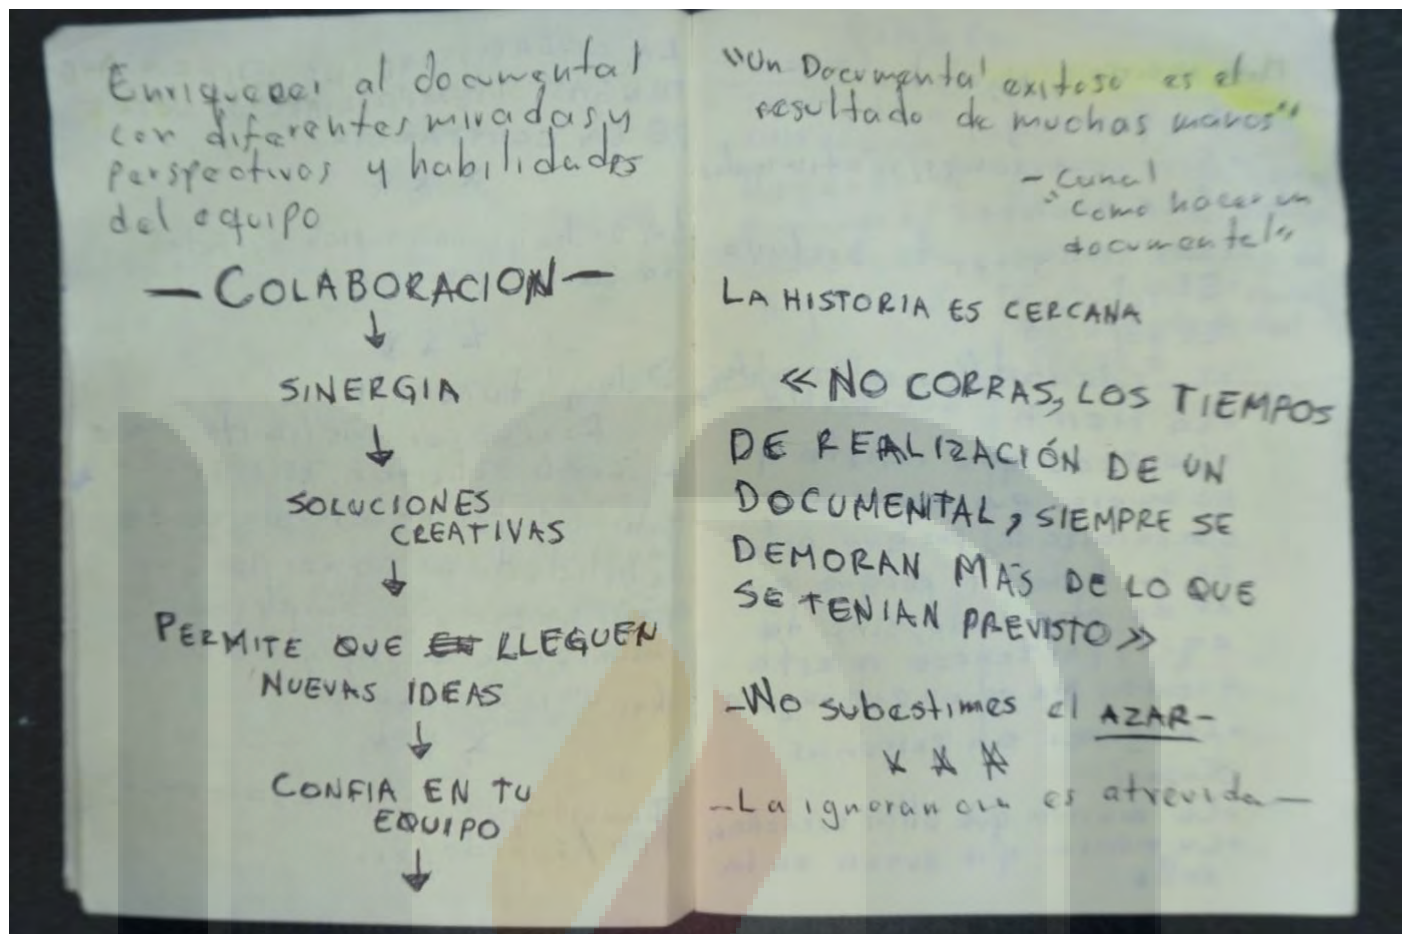 Enriquecer al documental
con diferentes miradas, y
perspectivas y habilidades
del equipo
— COLABORACION —
↓
SINERGIA
↓
SOLUCIONES
CREATIVAS
↓
PERMITE QUE LLEGUEN
NUEVAS IDEAS
↓
CONFIA EN TU
EQUIPO
↓
"Un Documental exitoso es el
resultado de muchas manos"
- Cunal
"Como hacer un
documental"
LA HISTORIA ES CERCANA
« NO CORRAS, LOS TIEMPOS
DE REALIZACIÓN DE UN
DOCUMENTAL, SIEMPRE SE
DEMORAN MÁS DE LO QUE
SE TENIAN PREVISTO »
-No subestimes el AZAR-
-La ignorancia es atrevida-